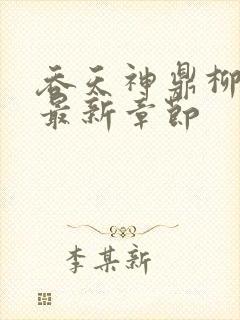 吞天神鼎柳
最新章节
李某新